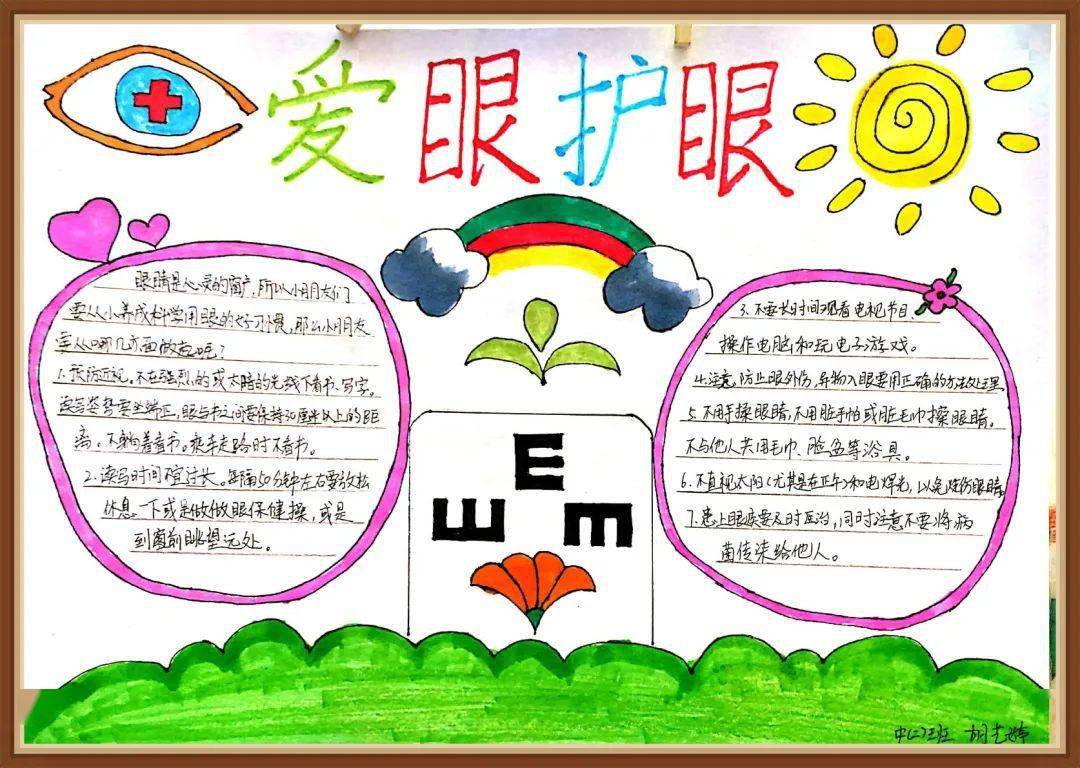 爱眼护眼
眼睛是心灵的窗户,所以小朋友们
要从小养成科学用眼的好习惯,那么小朋友
要从哪几方面做起呢?
1.预防近视。不在强烈的或太暗的光线下看书、写字。
读写姿势要坐端正,眼与书之间要保持30厘米以上的距
离。不躺着看书。乘车走路时不看书。
2.读写时间不宜过长。每隔50分钟左右要放松
休息一下或是做做眼保健操,或是
到窗前眺望远处。
3.不要长时间观看电视节目、
操作电脑和玩电子游戏。
4.注意防止眼外伤,异物入眼要用正确的方法处理
5.不用手揉眼睛,不用脏手帕或脏毛巾擦眼睛。
不与他人共用毛巾、脸鱼等浴具。
6.不直视太阳(尤其是在正午)和电焊光,以免烧伤眼睛
7.患上眼疾要及时医治,同时注意不要将病
菌传染给他人。
E
E E
中(二)班 胡艺婷